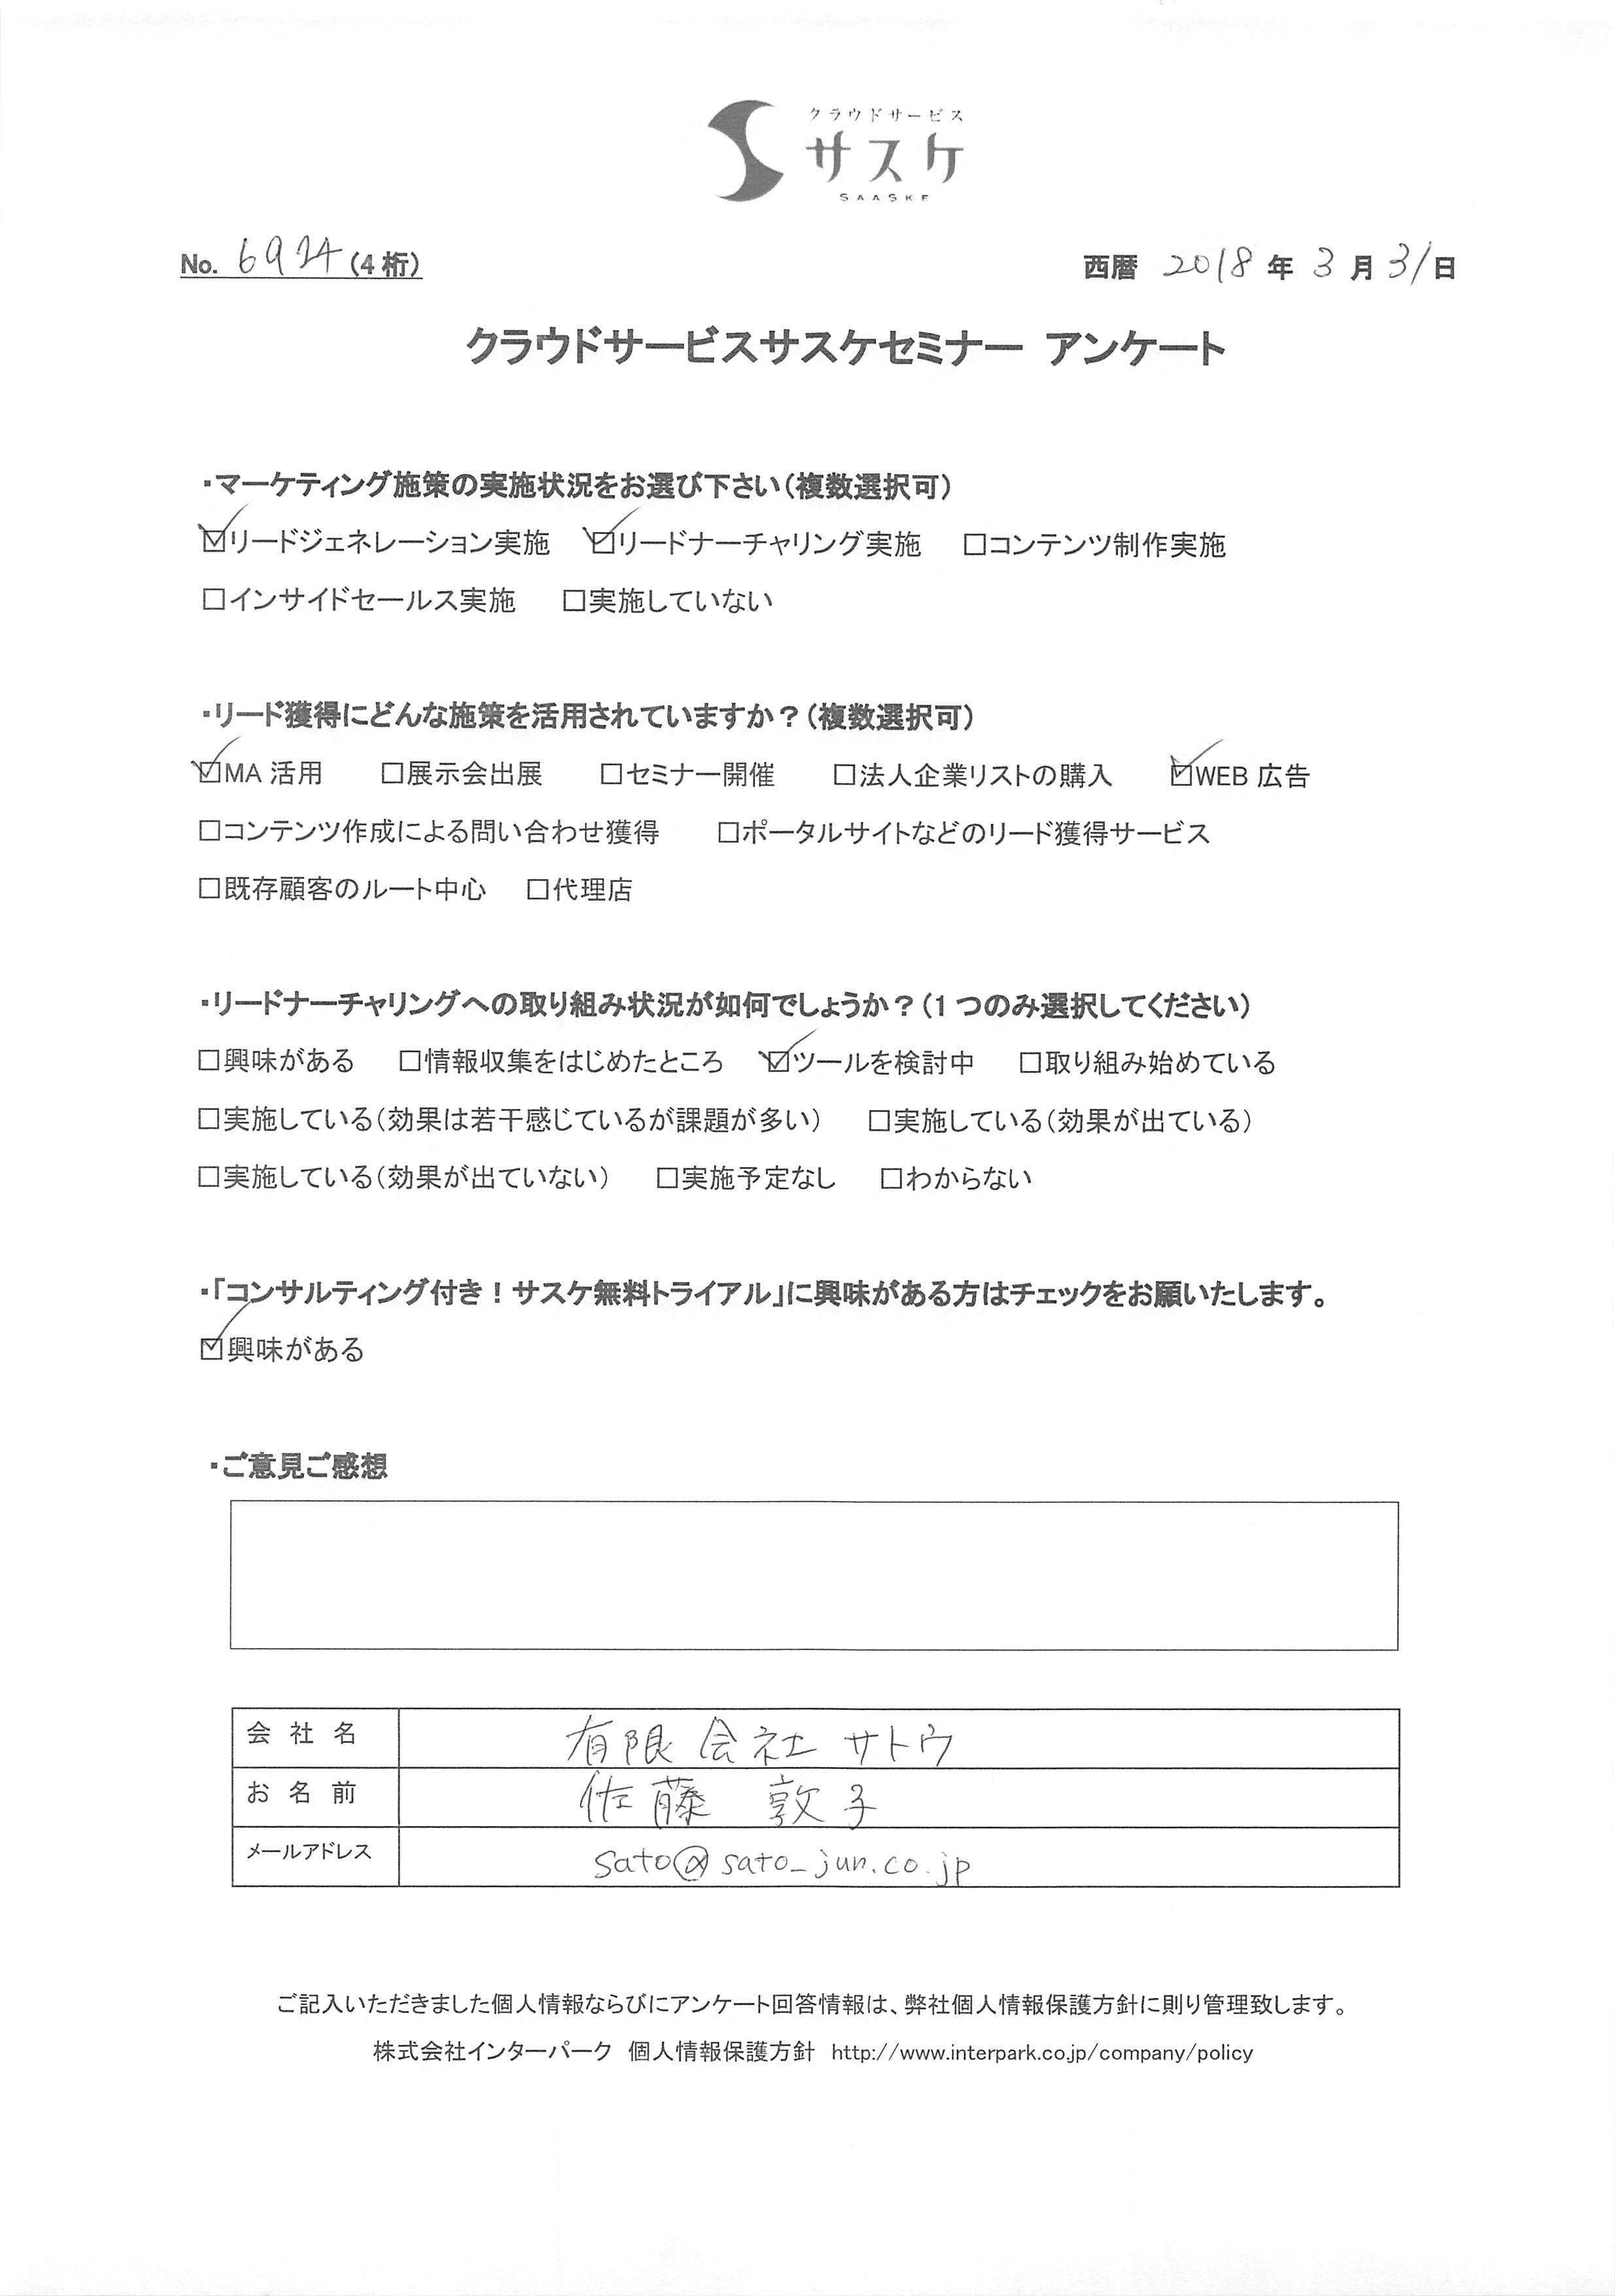 クラウドサービス
サスケ
SAASKE
No. 6924(4桁)
西暦 2018年 3月 31日
クラウドサービスサスケセミナー アンケート
・マーケティング施策の実施状況をお選び下さい(複数選択可)
☑リードジェネレーション実施 ☑リードナーチャリング実施 □コンテンツ制作実施
□インサイドセールス実施 □実施していない
・リード獲得にどんな施策を活用されていますか?(複数選択可)
☑MA 活用 □展示会出展 □セミナー開催 □法人企業リストの購入 ☑WEB 広告
□コンテンツ作成による問い合わせ獲得 □ポータルサイトなどのリード獲得サービス
□既存顧客のルート中心 □代理店
・リードナーチャリングへの取り組み状況が如何でしょうか?(1つのみ選択してください)
□興味がある □情報収集をはじめたところ ☑ツールを検討中 □取り組み始めている
□実施している(効果は若干感じているが課題が多い) □実施している(効果が出ている)
□実施している(効果が出ていない) □実施予定なし □わからない
・「コンサルティング付き!サスケ無料トライアル」に興味がある方はチェックをお願いたします。
☑興味がある
・ご意見ご感想
会社名 有限会社サトウ
お名前 佐藤 敦子
メールアドレス sato@sato_jun.co.jp
ご記入いただきました個人情報ならびにアンケート回答情報は、弊社個人情報保護方針に則り管理致します。
株式会社インターパーク 個人情報保護方針 http://www.interpark.co.jp/company/policy